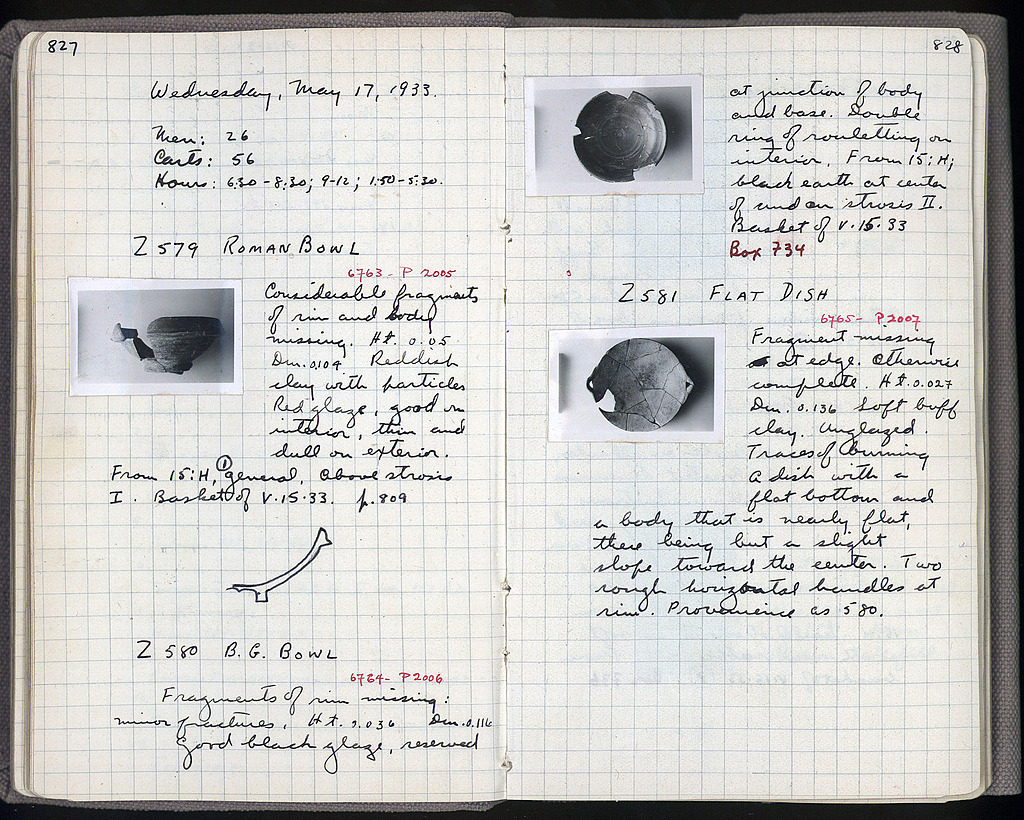 827
Wednesday, May 17, 1933.
Men: 26
Carts: 56
Hours: 6:30-8:30; 9-12; 1:50-5:30.
Z 579 ROMAN BOWL
6763- P 2005
Considerable fragments
of rim and body
missing. Ht. 0.05
Dm. 0.104. Reddish
clay with particles
Red glaze, good on
interior, thin and
dull on exterior.
From 15:H, ① general, above strosis
I. Basket of V.15.33. p.809
Z 580 B.G. BOWL
6764- P2006
Fragments of rim missing:
minor fractures. Ht. 0.036 Dm. 0.116
Good black glaze, reserved
828
at junction of body
and base. Double
ring of rouletting on
interior. From 15:H;
black earth at center
of under strosis II.
Basket of V.15.33
Box 734
Z 581 FLAT DISH
6765- P2007
Fragment missing
at edge. Otherwise
complete. Ht. 0.027
Dm. 0.136 Soft buff
clay. Unglazed.
Traces of burning
A dish with a
flat bottom and
a body that is nearly flat,
there being but a slight
slope toward the center. Two
rough horizontal handles at
rim. Provenience as 580.